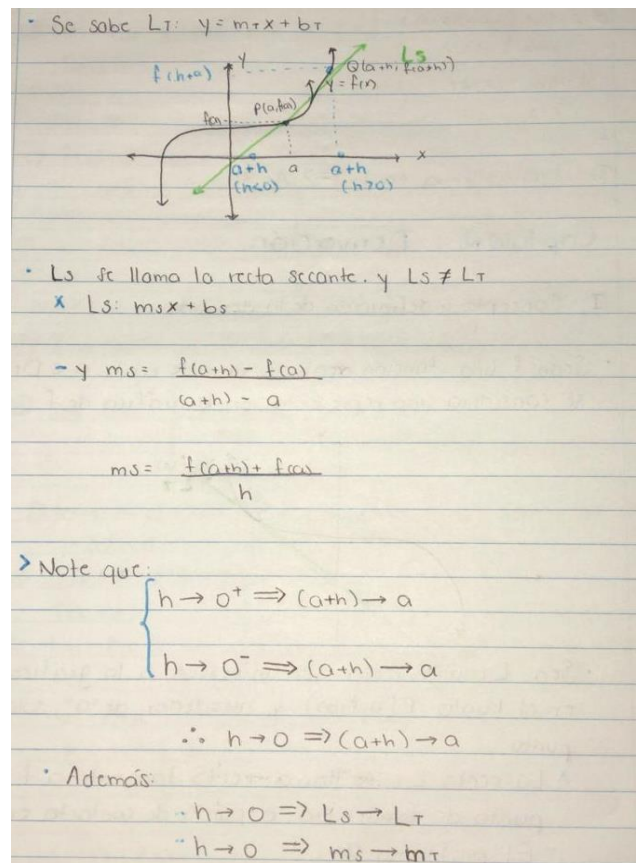 · Se sabe LT: y = mTx + bT
y
LS
f(h+a)
Q(a+h, f(a+h))
y = f(x)
P(a, f(a))
f(a)
x
a+h a a+h
(h<0) (h>0)
· Ls se llama la recta secante. y Ls ≠ LT
x Ls: msx + bs
- y ms = f(a+h) - f(a)
(a+h) - a
ms = f(a+h) + f(a)
h
> Note que:
h → 0⁺ ⟹ (a+h) → a
h → 0⁻ ⟹ (a+h) → a
∴ h → 0 ⟹ (a+h) → a
· Además:
· h → 0 ⟹ Ls → LT
· h → 0 ⟹ ms → mT